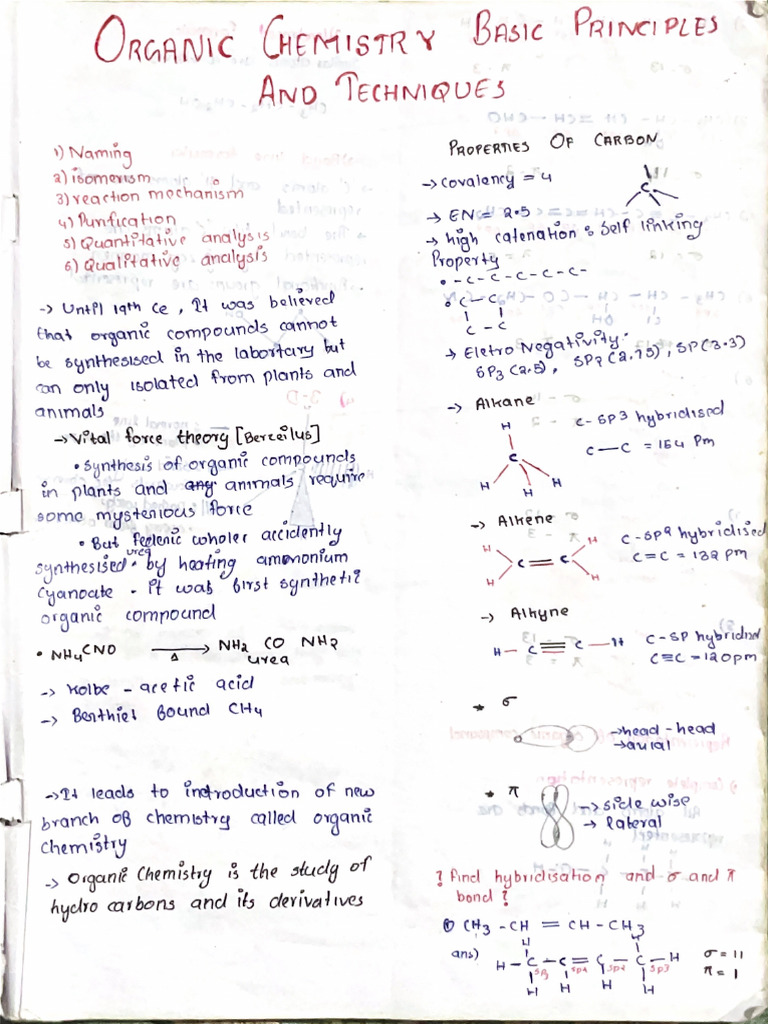 ORGANIC CHEMISTRY BASIC PRINCIPLES
AND TECHNIQUES
1) Naming
2) isomerism
3) reaction mechanism
4) Purification
5) Quantitative analysis
6) Qualitative analysis
-> Until 19th Ce, It was believed
that organic compounds cannot
be synthesised in the labortary but
can only isolated from plants and
animals
-> Vital force theory [Berceilus]
• Synthesis of organic compounds
in plants and any animals require
some mysterious force
• But feelenic wholer accidently
synthesised urea by heating ammonium
Cyanoate. It was first synthetic
organic compound
• NH4CNO ->Δ NH2 CO NH2
urea
-> Kolbe - acetic acid
-> Berthiet bound CH4
-> It leads to introduction of new
branch of chemistry called organic
chemistry
-> Organic Chemistry is the study of
hydro carbons and its derivatives
PROPERTIES OF CARBON
-> Covalency = 4
C
-> EN = 2.5
-> high catenation : Self linking
Property
• -C-C-C-C-C-
• C-C
C-C
-> Eletro Negativity:
SP3 (2.5), SP2 (2.75), SP (3.3)
-> Alkane
H C H H H
C-SP3 hybridised
C-C = 154 Pm
-> Alkene
H H C=C H H
C-SP2 hybridised
C=C = 132 pm
-> Alkyne
H-C≡C-H
C-SP hybridised
C≡C = 120pm
* σ
-> head-head
-> axial
* π
-> side wise
-> lateral
? Find hybridisation and σ and π
bond ?
① CH3-CH=CH-CH3
ans)
H H
H-C-C=C-C-H
SP3 SP2 SP2 SP3
H H H H
σ = 11
π = 1